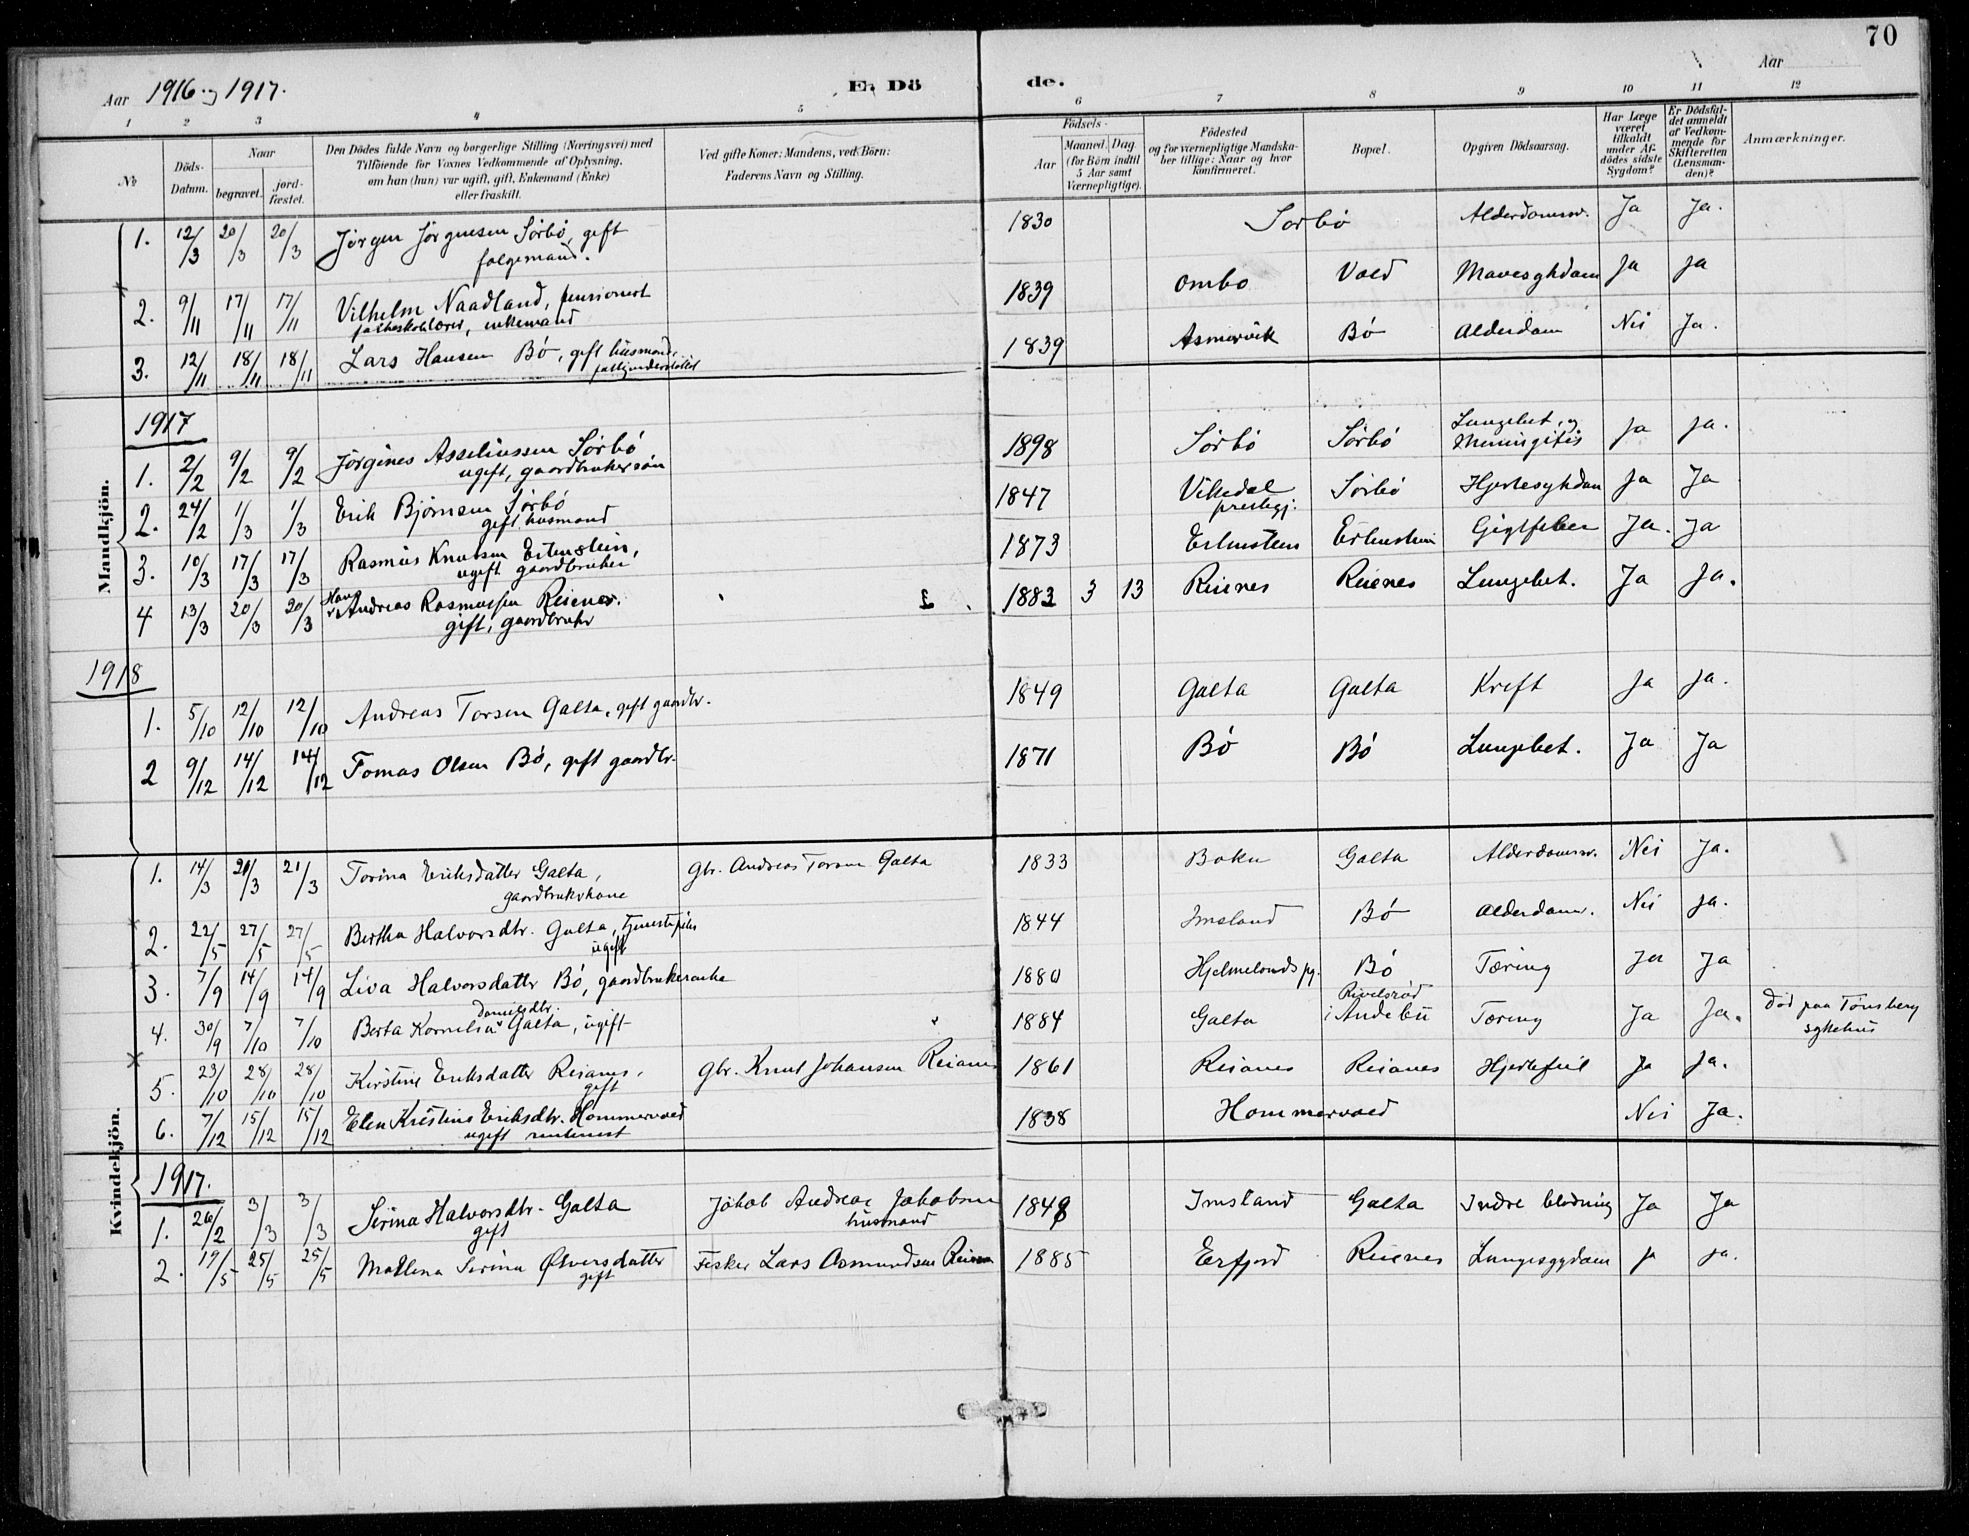 70
Aar 1916 og 1917.
En Dö de.
Aar
1 2 3 4 5 6 7 8 9 10 11 12
No
Döds-Datum.
Naar
begravet.
jord-fæstet.
Den Dödes fulde Navn og borgerlige Stilling (Næringsvei) med
Tilföiende for Voxnes Vedkommende af Oplysning,
om han (hun) var ugift, gift, Enkemand (Enke)
eller fraskilt.
Ved gifte Koner: Mandens, ved Börn:
Faderens Navn og Stilling.
Födsels-
Aar
Maaned. Dag
(for Börn indtil
5 Aar samt
Værnepligtige).
Födested
og for værnepligtige Mandska-
ber tillige: Naar og hvor
konfirmeret.
Bopæl.
Opgiven Dödsaarsag.
Har Læge
været
tilkaldt
under Af-
dödes sidste
Sygdom?
Er Dödsfal-
det anmeldt
af Vedkom-
mende for
Skifteretten
(Lensman-
den)?
Anmærkninger.
Mandkjön.
1. 12/3 20/3 20/3 Jörgen Jörgensen Sörbö, gift 1830 Sörbö Alderdomssv. Ja Ja.
folgemand.
2. 9/11 17/11 17/11 Vilhelm Naadland, pensionert 1839 Ombo Vold Mavesykdom Ja Ja
folkeskolelærer, enkemand
3. 12/11 18/11 18/11 Lars Hansen Bö, gift husmand, 1839 Asmarvik Bö Alderdom Nei Ja.
fattigunderstöttet
1917
1. 2/2 9/2 9/2 Jörgines Asseliussen Sörbö 1898 Sörbö Sörbö Lungebet. og Meningitis Ja Ja.
ugift, gaardbrukersön
2. 24/2 1/3 1/3 Erik Björnsen Sörbö 1847 Vikedal prestegj. Sörbö Hjertesykdom Ja Ja
gift husmand
3. 10/3 17/3 17/3 Rasmus Knutsen Ertenstein, 1873 Ertenstein Ertenstein Gigtfeber Ja. Ja
ugift gaardbruker
4 13/3 20/3 20/3 Hans Andreas Rasmussen Reienes. 1883 3 13 Reienes Reienes Lungebet. Ja Ja.
gift, gaardbruker
1918
1. 5/10 12/10 12/10 Andreas Torsen Galta, gift gaardbr. 1849 Galta Galta Kreft Ja Ja.
2 9/12 14/12 14/12 Tomas Olsen Bö, gift gaardbr. 1871 Bö Bö Lungebet. Ja Ja
Kvindekjön.
1. 14/3 21/3 21/3 Torina Eriksdatter Galta, gbr. Andreas Torsen Galta 1833 Bokn Galta Alderdomssv. Nei Ja.
gaardbrukkone
2. 22/5 27/5 27/5 Bertha Halvorsdtr. Galta, tjenestepike 1844 Imsland Bö Alderdom. Nei Ja.
ugift
3. 7/9 14/9 14/9 Liva Halvorsdatter Bö, gaardbrukerenke 1880 Hjelmelands pg. Bö Tæring Ja Ja
4. 30/9 7/10 7/10 Berta Kornelia Danielsdtr. Galta, ugift 1884 Galta Rivelsröd i Andebu Tæring Ja Ja. Död paa Tönsberg
sykehus
5. 23/10 28/10 28/10 Kirstine Eriksdatter Reianes, gbr. Knut Johansen Reianes 1861 Reianes Reianes Hjertefeil Ja Ja.
gift
6. 7/12 15/12 15/12 Elen Kristine Eriksdtr. Hommervold 1838 Hommervold Nei Ja.
ugift rentenist
1917.
1. 26/2 3/3 3/3 Serina Halvorsdtr. Galta Jakob Andreas Jakobsen 1848 Imsland Galta Indre blödning Ja Ja
gift husmand
2. 19/5 25/5 25/5 Mallena Serina Østversdatter Fisker Lars Asmundsen Reienes 1885 Erfjord Reienes Lungesygdom Ja Ja.
gift